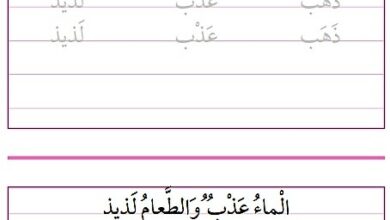 ذَهَب عَذْب لَذيذ
ذَهَب عَذْب لَذيذ
الْماءُ عَذْبٌ وَالطَّعامُ لَذيذ